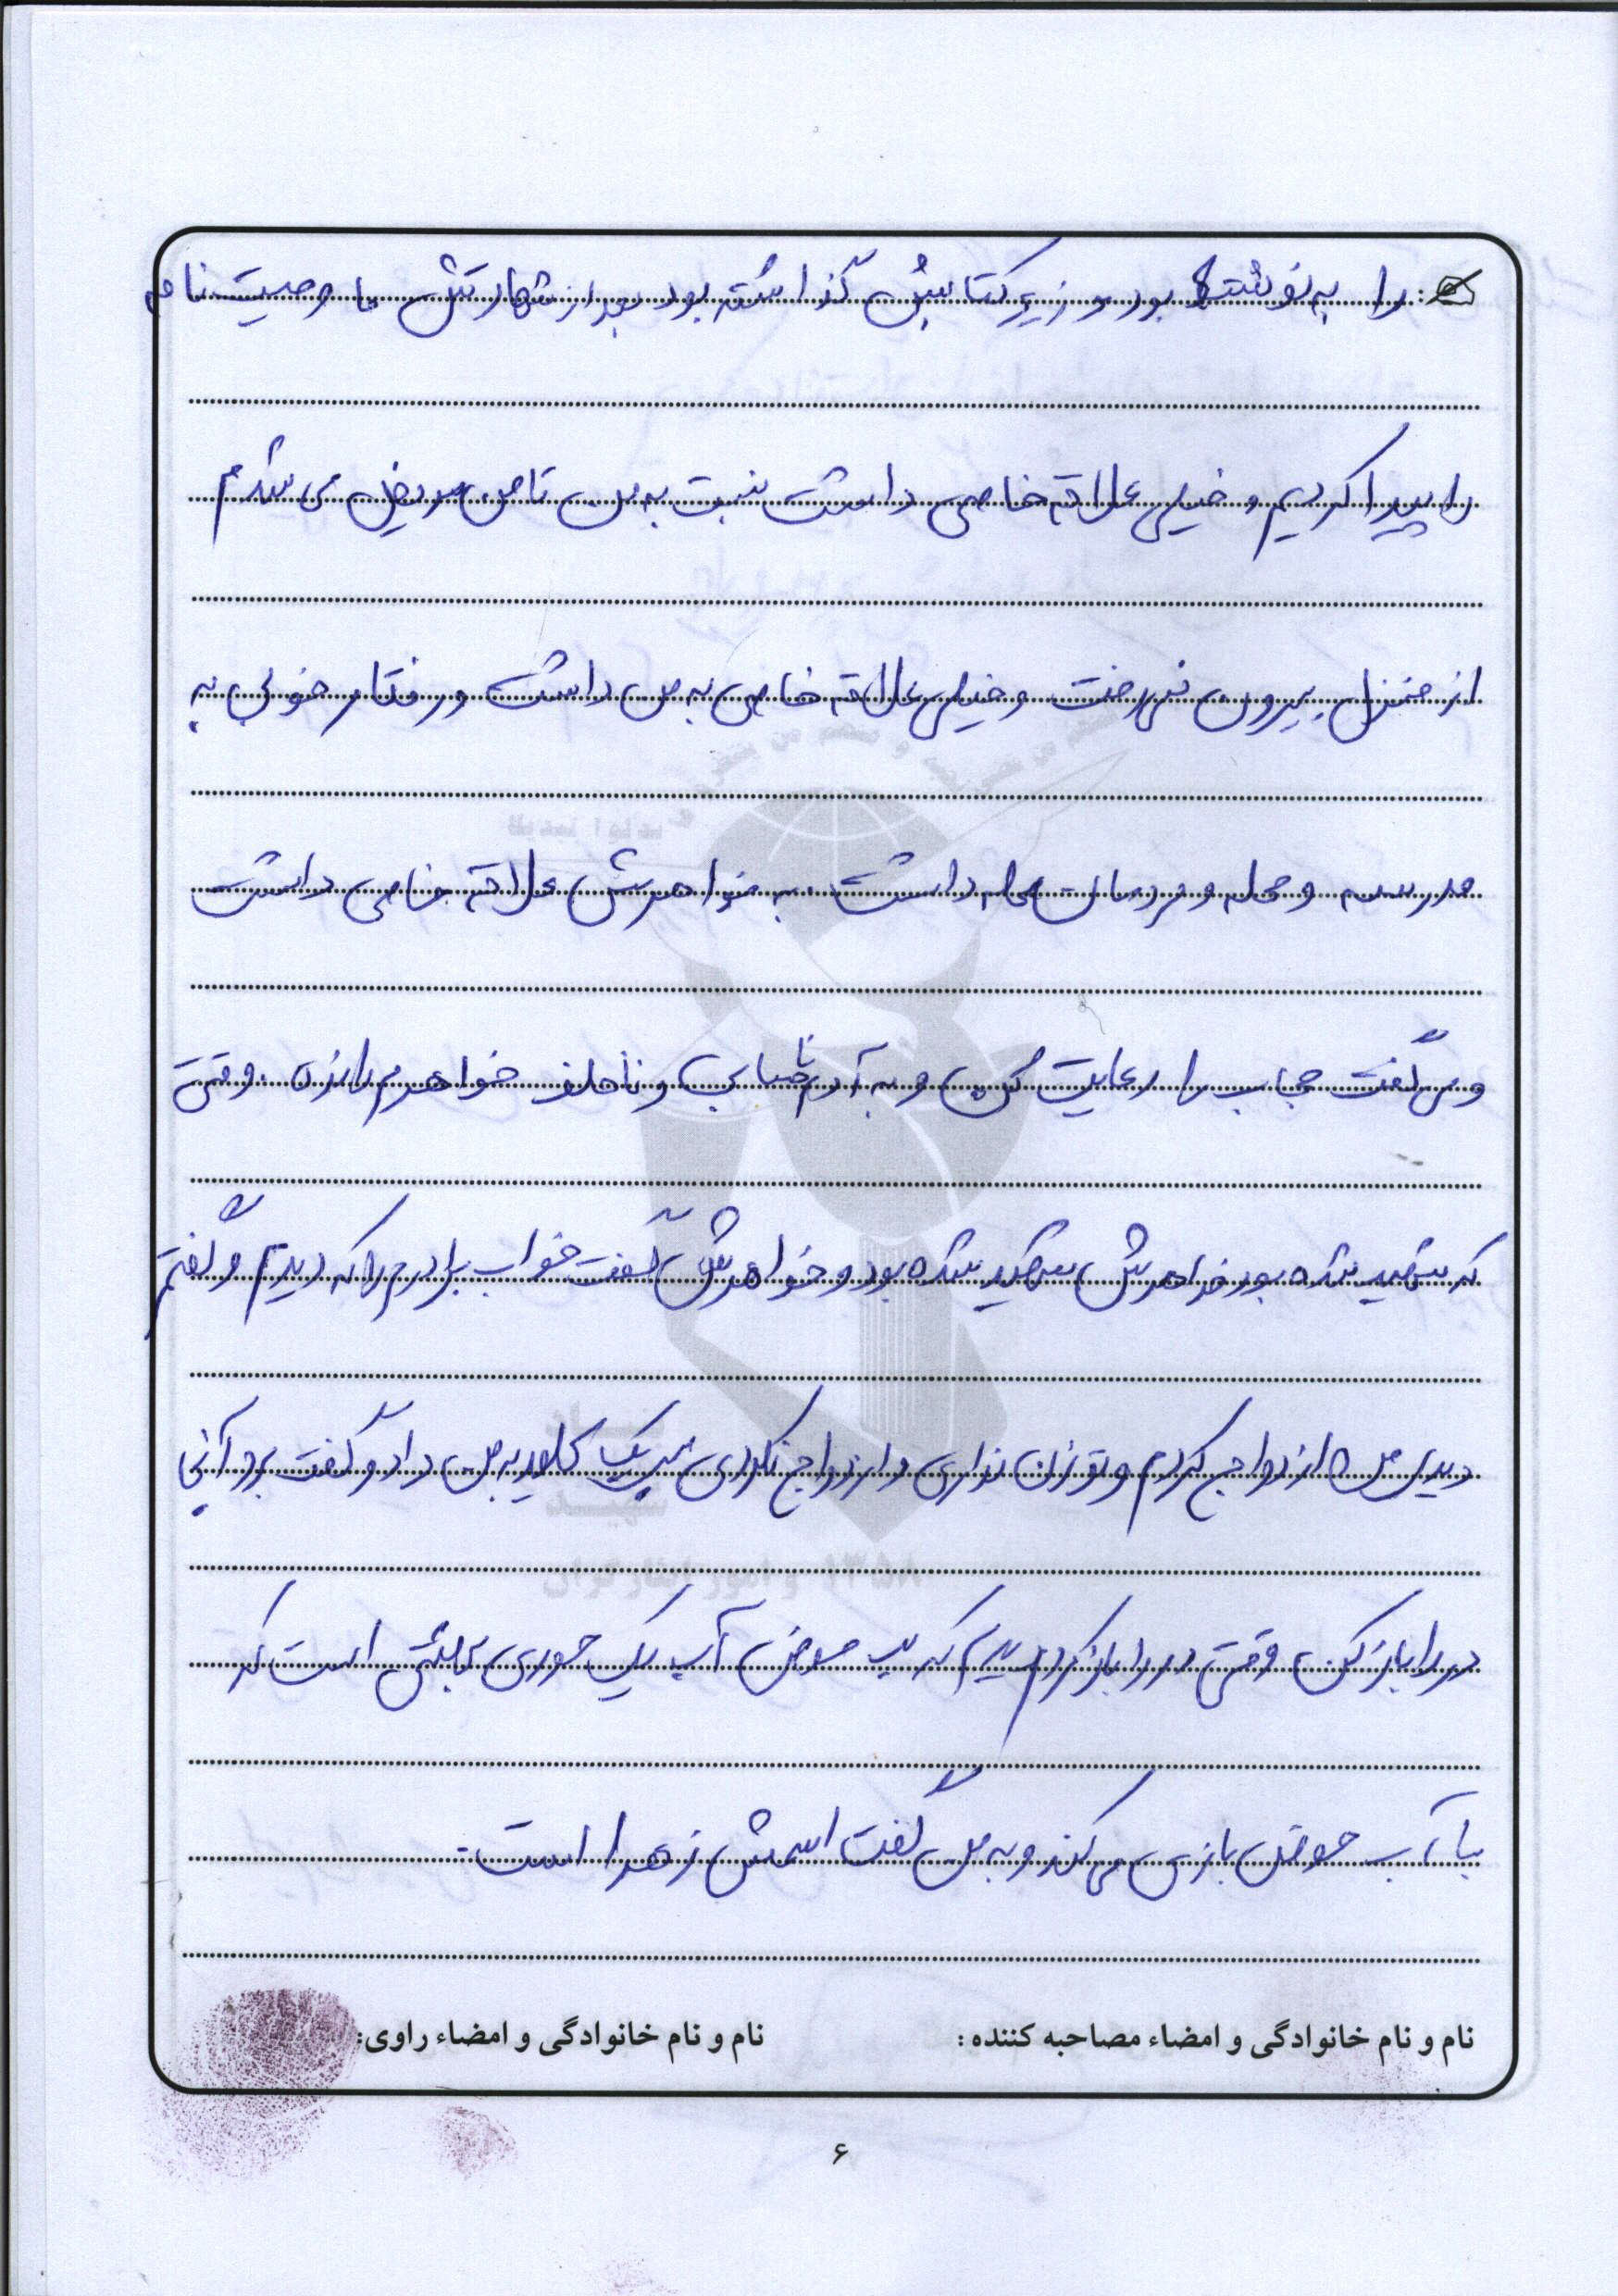 را به نوشته بود و زیر کتابش گذاشته بود بعد از شهادتش ما وصیت نامه
را پیدا کردیم و خیلی علاقه خاصی داشت نسبت به من تا من مریض می شدم
از منزل بیرون نمی رفت و خیلی علاقه خاصی به من داشت و رفتار خوبی به
مدرسه و محله و مردمان محله داشت به خواهرش علاقه خاصی داشت
و می گفت حجاب را رعایت کن و به آدم و ناخلف خواهرم را نزن . وقتی
که شهید شده بود خواهرش شهید شده بود و خواهرش گفت خواب برادرم را که دیدم و گفتم
دیدی من ازدواج کردم و تو زن نداری و ازدواج نکردی یک کلید به من داد و گفت برو آنجا
در را باز کن وقتی در را باز کردم دیدم که لب حوض آب یک حوری بهشتی است که
با آب حوض بازی می کند و به من گفت اسمش زهرا است.
نام و نام خانوادگی و امضاء مصاحبه کننده : نام و نام خانوادگی و امضاء راوی:
۶